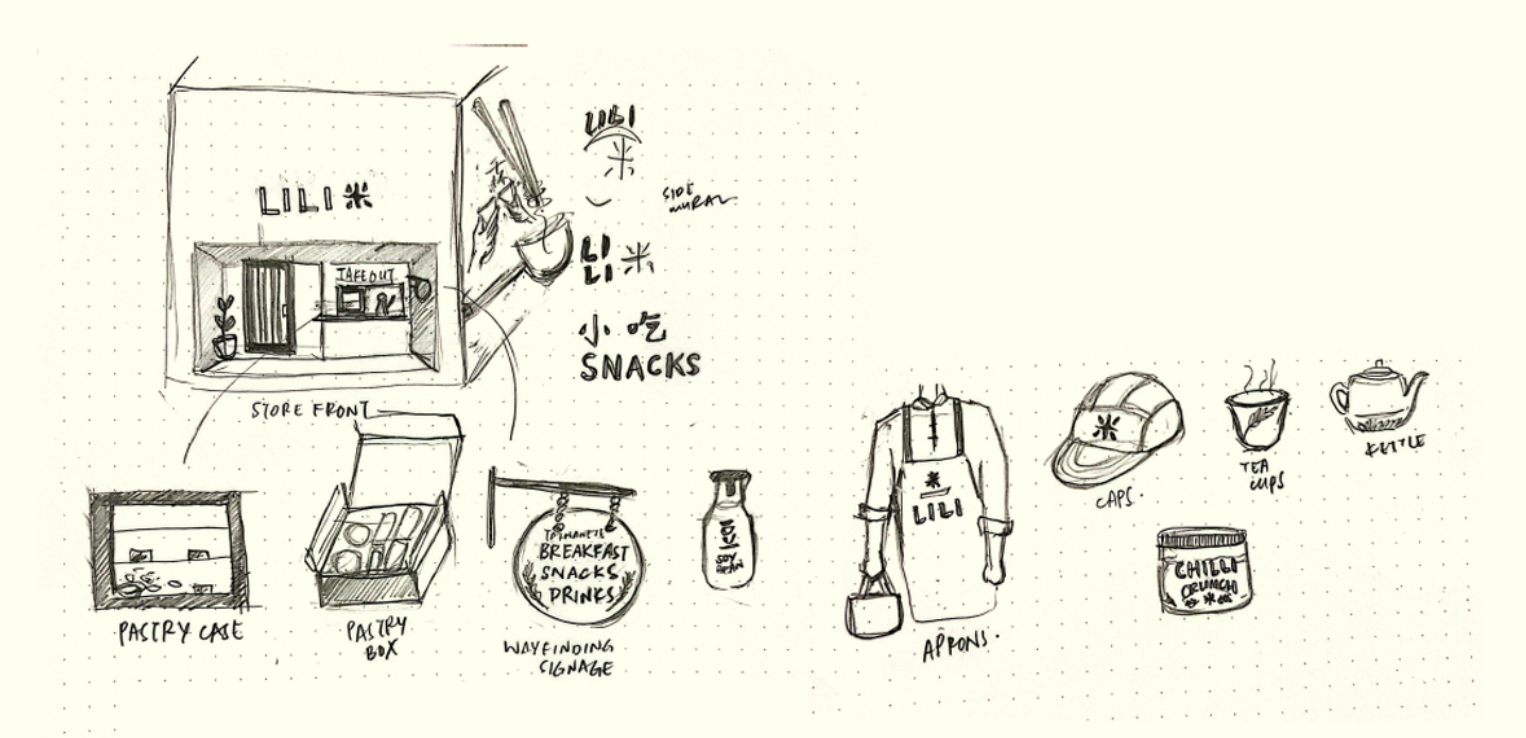 LILI 米
TAKEOUT
STORE FRONT
LILI
米
SIDE
MURAL
LI
LI 米
小吃
SNACKS
PASTRY CASE
PASTRY
BOX
BREAKFAST
SNACKS
DRINKS
WAYFINDING
SIGNAGE
SOY
BEAN
米
LILI
APRONS.
米
CAPS.
TEA
CUPS
KETTLE
CHILLI
CRUNCH